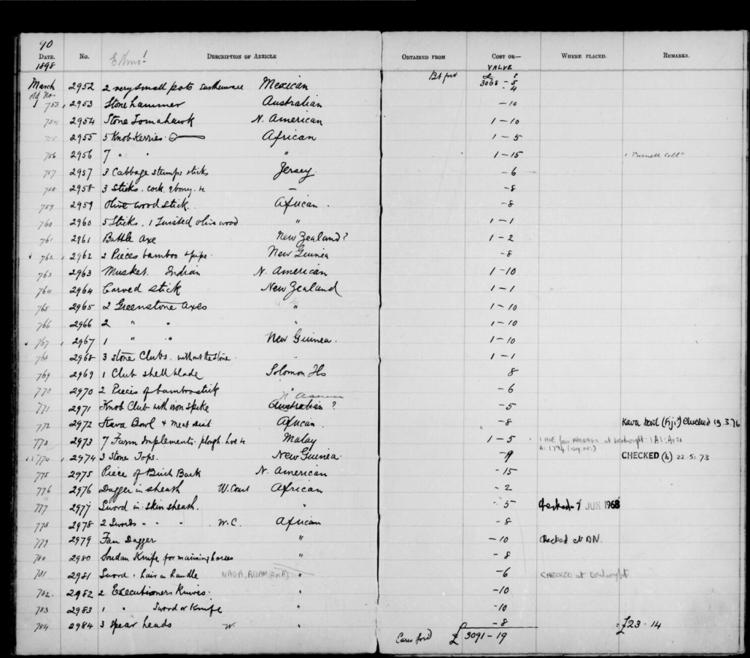 70
DATE. No. Ethno! DESCRIPTION OF ARTICLE OBTAINED FROM COST OR VALUE WHERE PLACED. REMARKS.
1898
Bt ford £ 3008 - 5
March 2952 2 very small pots earthenware Mexican - 4
753 2953 Stone hammer Australian - 10
754 2954 Stone Tomahawk N. American 1 - 10
755 2955 5 Knob Kerries African 1 - 5
756 2956 7 " " " 1 - 15
757 2957 3 Cabbage stamps sticks Jersey - 6
758 2958 3 Sticks. cork ebony - - 8
759 2959 Olive wood stick African. - 8
760 2960 5 Sticks. 1 Twisted olive wood " 1 - 1
761 2961 Battle Axe New Zealand? 1 - 2
762 2962 2 Pieces bamboo & pipe New Guinea - 8
763 2963 Musket. Indian N. American 1 - 10
764 2964 Carved stick New Zealand 1 - 1
765 2965 2 Greenstone axes 1 - 10
766 2966 2 " " 1 - 10
767 2967 1 " " New Guinea. 1 - 10
768 2968 3 Stone Clubs. without the stone 1 - 1
769 2969 1 Club shell blade Solomon Is 8
770 2970 2 Pieces of bamboo stick - 6
771 2971 Knob Club with iron spike Australia ? - 5
772 2972 Kava Bowl & meat dish African. - 8 Kava bowl (Fiji) Checked 19.3.76
773 2973 7 Farm Implements. plough hoe & Malay 1 - 5
774 2974 3 Stone Tops. New Guinea - 9 CHECKED (b) 22.5.73
775 2975 Piece of Birch Bark N. American - 15
776 2976 Dagger in sheath W. Coast African - 2
777 2977 Sword in skin sheath. " - 5 Checked JUN 1968
778 2978 2 Swords " " W.C. African - 8
779 2979 Fan Dagger " - 10 Checked at DN.
780 2980 Soudan Knife for maiming horses " - 8
781 2981 Sword. hair on handle NAGA, ASSAM " - 6 CHECKED at
782 2982 2 Executioners Knives. " - 10
783 2983 1 " Sword or Knife " - 10
784 2984 3 Spear heads " - 8 £23 - 14
Car'd ford £ 3091 - 19